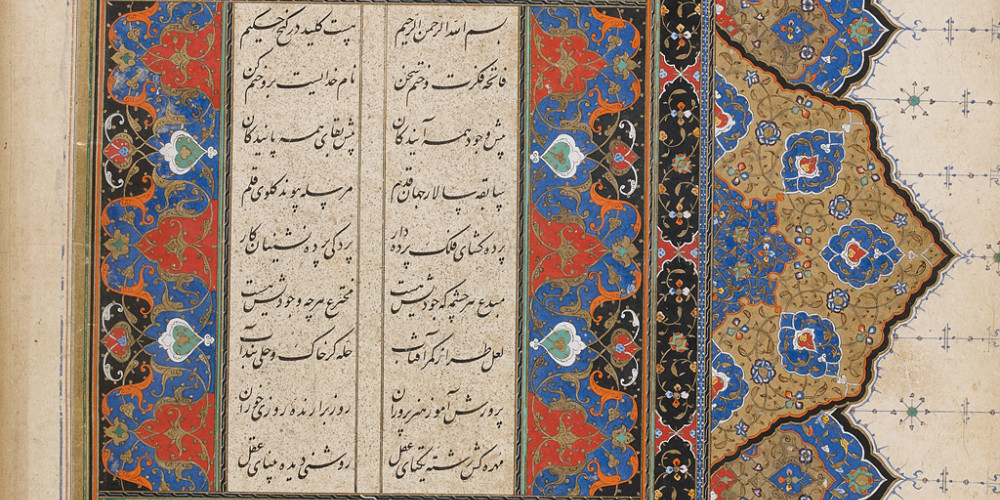 بسم الله الرحمن الرحیم هست کلید در کنج حکیم
فاتحه فکرت و ختم سخن نام خدایست برو ختم کن
پیش وجود همه آیندکان پیش بقای همه پایندکان
سابقه سالار جهان قدم مرسله پیوند کلوی قلم
پرده کشای فلک پرده دار پردکی پرده نشینان کار
مبدع هر چشمه که جودیش هست مخترع هر چه وجودیش هست
لعل طراز کمر آفتاب حله کر خاک و حلی بند آب
پرورش آموز پروران روز برارنده روزی خوران
مهره کش رشته یکتای عقل روشنی دیده بینای عقل